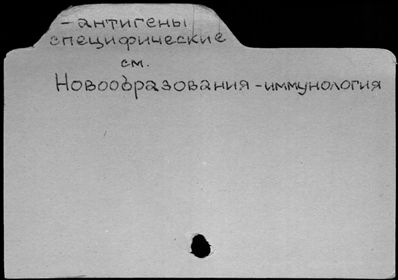 - антигены
специфические
см.
Новообразования - иммунология